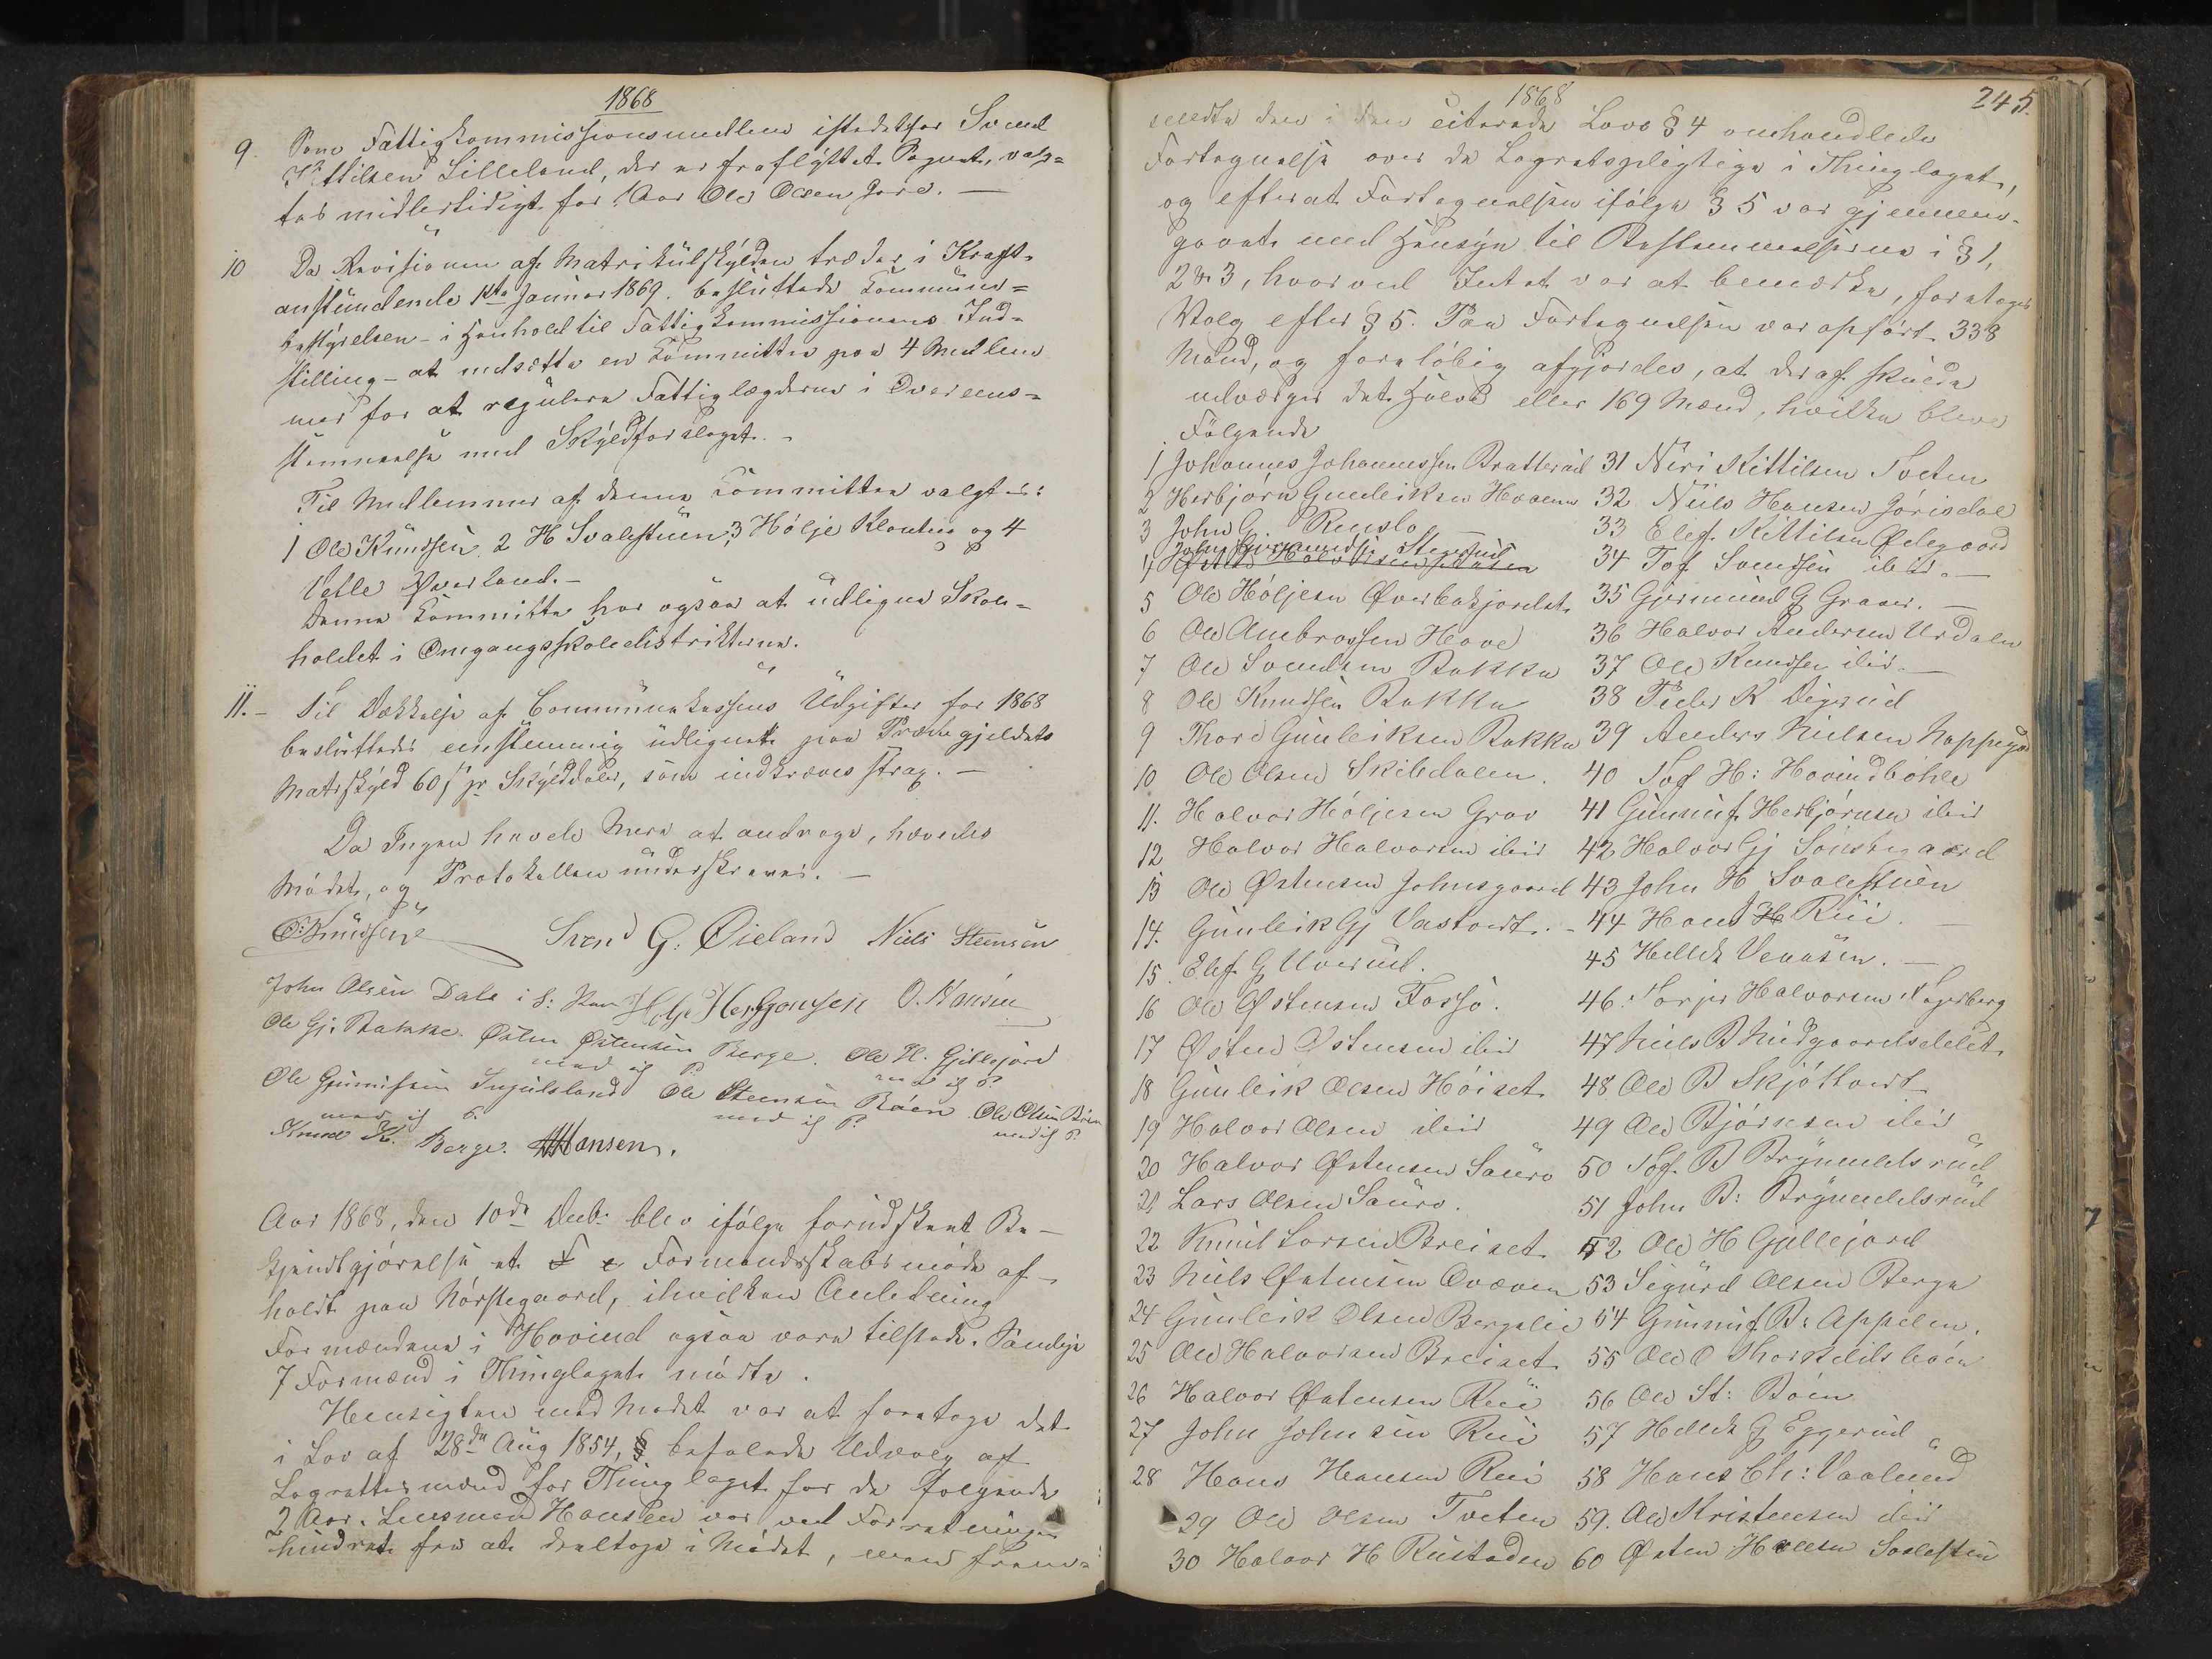 1868
9. Som Fattigkommissionsmedlem istedetfor Svend
Kittilsen Lilleland, der er fraflyttet Sognet, valg-
tes midlertidigt for 1 Aar Ole Olsen Jore. —
10 Da Revisionen af Matrikülskylden træder i Kraft
anstundende 1ste Januar 1869. besluttede Kommune-
bestyrelsen - i Henhold til Fattigkommissionens Ind-
stilling - at nedsætte en Kommitte paa 4 Medlem-
mer for at regulere Fattiglægderne i Overens-
stemmelse med Skyldforslaget. -
Til Medlemmer af denne Kommittee valgtes:
1 Ole Knudsen, 2 H Svalestuen, 3 Hølje Kleuten og 4
Vetle Øverland. -
Denne Kommitte har ogsaa at udligne Skole-
holdet i Omgangsskoledistrikterne.
11. - Til Dækkelse af Communekassens Udgifter for 1868
besluttedes eenstemmig udlignet paa Præstegjeldets
Matrskyld 60 s pr Skylddaler, som indkræves strax. —
Da Ingen havde Mere at andrage, hævedes
Mødet, og Protokollen underskreves. —
O. Knudsen Svend G. Øieland Niels Steensen
John Olsen Dale i S: Helge Hansen O. Hansen
Ole Gj. Bakke. Østen Østensen Berge. Ole H. Gjellejord
med i P. med i P.
Ole Gunnufsen Ingulsland Ole Steensen Bøen Ole Olsen Bøen
med i P. med i P. med i P.
Knud K. Berge. HHansen.
Aar 1868, den 10de Decb: blev ifølge forudskeet Be-
kjendtgjørelse et Formandsskabsmøde af-
holdt paa Nørstegaard, i hvilken Anledning
Formændene i Hovind ogsaa vare tilstede. Samtlige
7 Formænd i Thinglaget mødte.
Hensigten med Mødet var at foretage det
i Lov af 28de Aug 1854, § befalede Udvalg af
Lagrettesmænd for Thinglaget for de følgende
2 Aar. Lensmand Hansen var ved Forretninger
hindret fra at deeltage i Mødet, men frem-
1868 245.
sendte den i den citerede Lovs § 4 omhandlede
Fortegnelse over de Lagretspligtige i Thinglaget,
og efterat Fortegnelsen ifølge § 5 var gjennem-
gaaet med Hensyn til Bestemmelserne i § 1,
2 & 3, hvorved Intet var at bemærke, foretoges
Valg efter § 5. Paa Fortegnelsen var opført 338
Mænd, og foreløbig afgjordes, at deraf skulde
udvælges det Halve eller 169 Mænd, hvilke bleve
Følgende
1 Johannes Johannessen Bratterud 31 Neri Kittilsen Tveten
2 Herbjørn Gunleiksen Hvaalen 32 Niels Hansen Jørisdal
3 John G Renslo 33 Elef Kittilsen Ødegaard
4 John Germundsen Stegerud 34 Tof Svendsen ibid. —
5 Ole Høljesen Øverbøkjordet 35 Germund G Graver. —
6 Ole Ambrossen Hove 36 Halvor Andersen Urdalen
7 Ole Svendsen Bakka 37 Ole Knudsen ibid. —
8 Ole Knudsen Bakka 38 Peder K Digerud
9 Thore Gunleiksen Bakka 39 Anders Nielsen Neppegd
10 Ole Olsen Skibdalen. 40 Tof H: Hovindbøhle
11. Halvor Høljesen Grov 41 Gunnuf Herbjørnsen ibid
12 Halvor Halvorsen ibid 42 Halvor Gj Sønstegaard
13 Ole Østensen Johnsgaard 43 John H Svalestuen
14. Gunleik Gj Vastveit. - 44 Hans H Rüi. —
15. Elef G Uverud. 45 Hellek Venaasen. —
16 Ole Østensen Forsø. 46. Torjer Halvorsen Kyserberg
17 Østen Østensen ibid 47 Niels B Midgaardsdelet
18 Gunleik Olsen Høiset 48 Ole B Skjøttveit
19 Halvor Olsen ibid 49 Ole Bjørnsen ibid
20 Halvor Østensen Sauro 50 Tof. B Brynuldsrud
21 Lars Olsen Sauro. 51 John B: Brynuldsrud
22 Knud Larsen Breiset 52 Ole H Gjellejord
23 Niels Østensen Qværn 53 Sigurd Olsen Berge
24 Gunleik Olsen Bergelie 54 Gunnuf B: Appelen.
25 Ole Halvorsen Breiset 55 Ole O Thorkildsbøen
26 Halvor Østensen Rüi 56 Ole St: Bøen
27 John Johnsen Rüi 57 Hellek G Eggerud
28 Hans Hansen Rüi 58 Hans Ch: Vaalund
29 Ole Olsen Tveten 59. Ole Kristensen ibid
30 Halvor H Rustaden 60 Østen Hansen Svalestuen